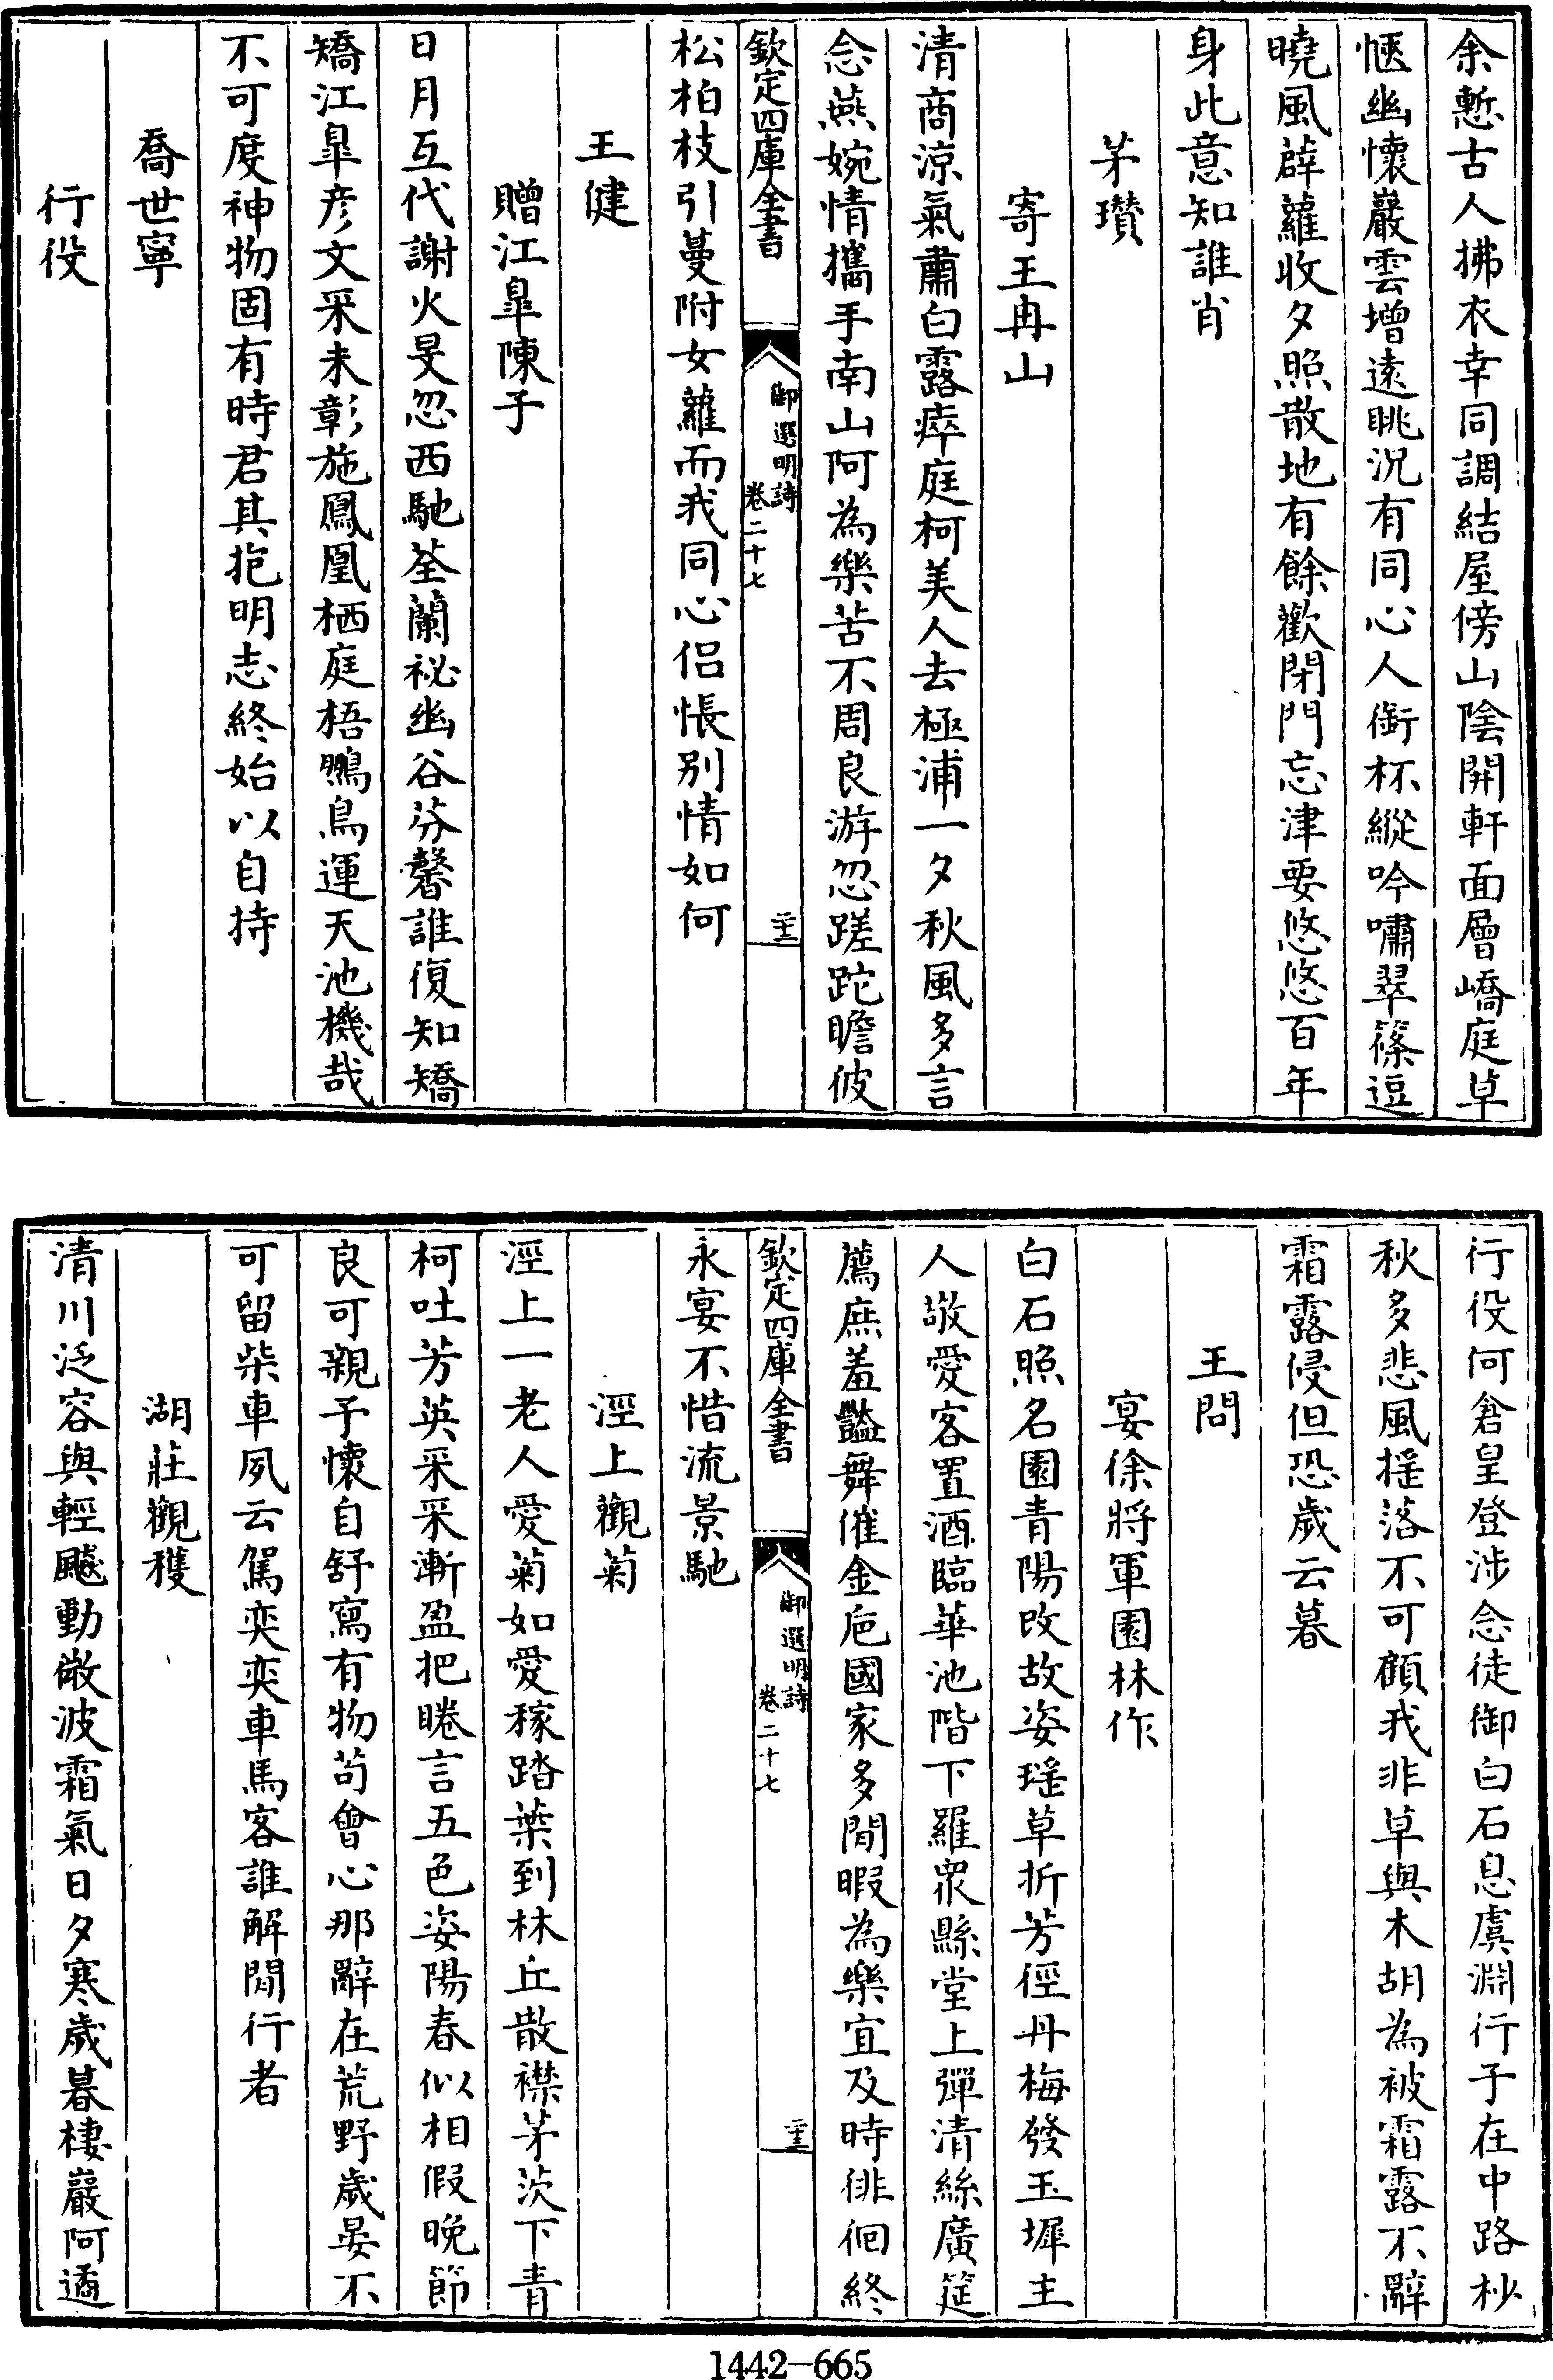 余慙古人拂衣幸同調結屋傍山陰開軒面層嶠庭草
愜幽懷巖雲增遠眺况有同心人銜杯縱吟嘯翠篠逗
曉風薜蘿收夕照散地有餘歡閉門忘津要悠悠百年
身此意知誰肖
茅瓚
寄王冉山
清商涼氣肅白露瘁庭柯美人去極浦一夕秋風多言
念燕婉情攜手南山阿為樂苦不周良游忽蹉跎瞻彼
欽定四庫全書
御選明詩
卷二十七
二十二
松柏枝引蔓附女蘿而我同心侣悵别情如何
王健
贈江臯陳子
日月互代謝火旻忽西馳荃蘭祕幽谷芬馨誰復知矯
矯江臯彦文采未彰施鳳凰栖庭梧鵬鳥運天池機哉
不可度神物固有時君其抱明志終始以自持
喬世寧
行役
行役何倉皇登涉念徒御白石息虞淵行子在中路杪
秋多悲風摇落不可顧我非草與木胡為被霜露不辭
霜露侵但恐歲云暮
王問
宴徐將軍園林作
白石照名園青陽改故姿瑶草折芳徑丹梅發玉墀主
人敬愛客置酒臨華池階下羅衆縣堂上彈清絲廣筵
薦庶羞豔舞催金卮國家多閒暇為樂宜及時徘徊終
欽定四庫全書
御選明詩
卷二十七
二十三
永宴不惜流景馳
涇上觀菊
涇上一老人愛菊如愛稼踏葉到林丘散襟茅茨下青
柯吐芳英采采漸盈把睠言五色姿陽春似相假晚節
良可親予懷自舒寫有物苟會心那辭在荒野歲晏不
可留柴車夙云駕奕奕車馬客誰解閒行者
湖莊觀穫
清川泛容與輕飈動微波霜氣日夕寒歲暮棲巖阿適
1442-665